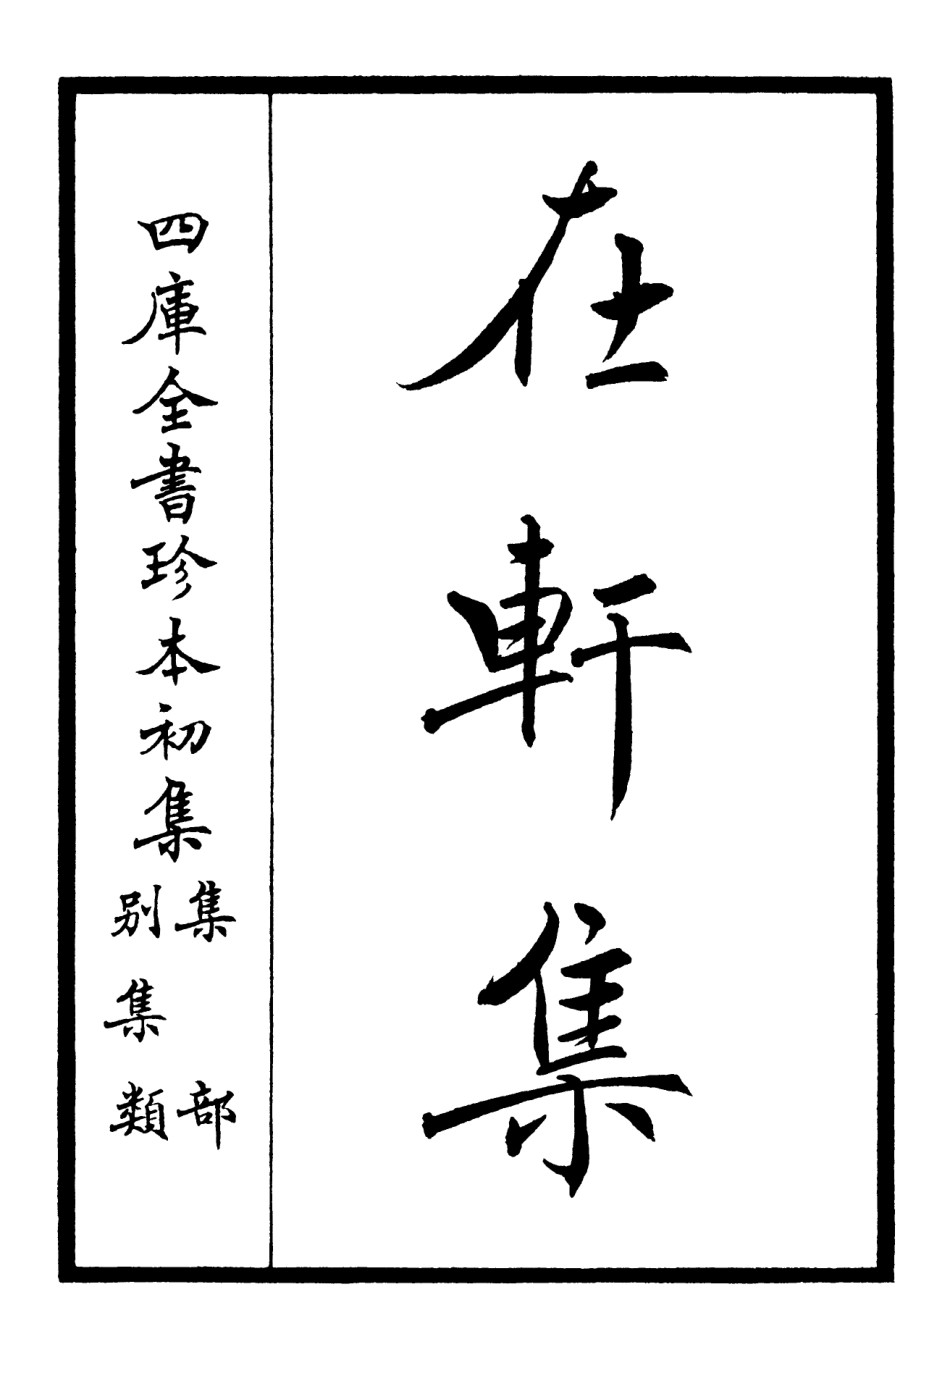 在軒集
四庫全書珍本初集
集部
別集類